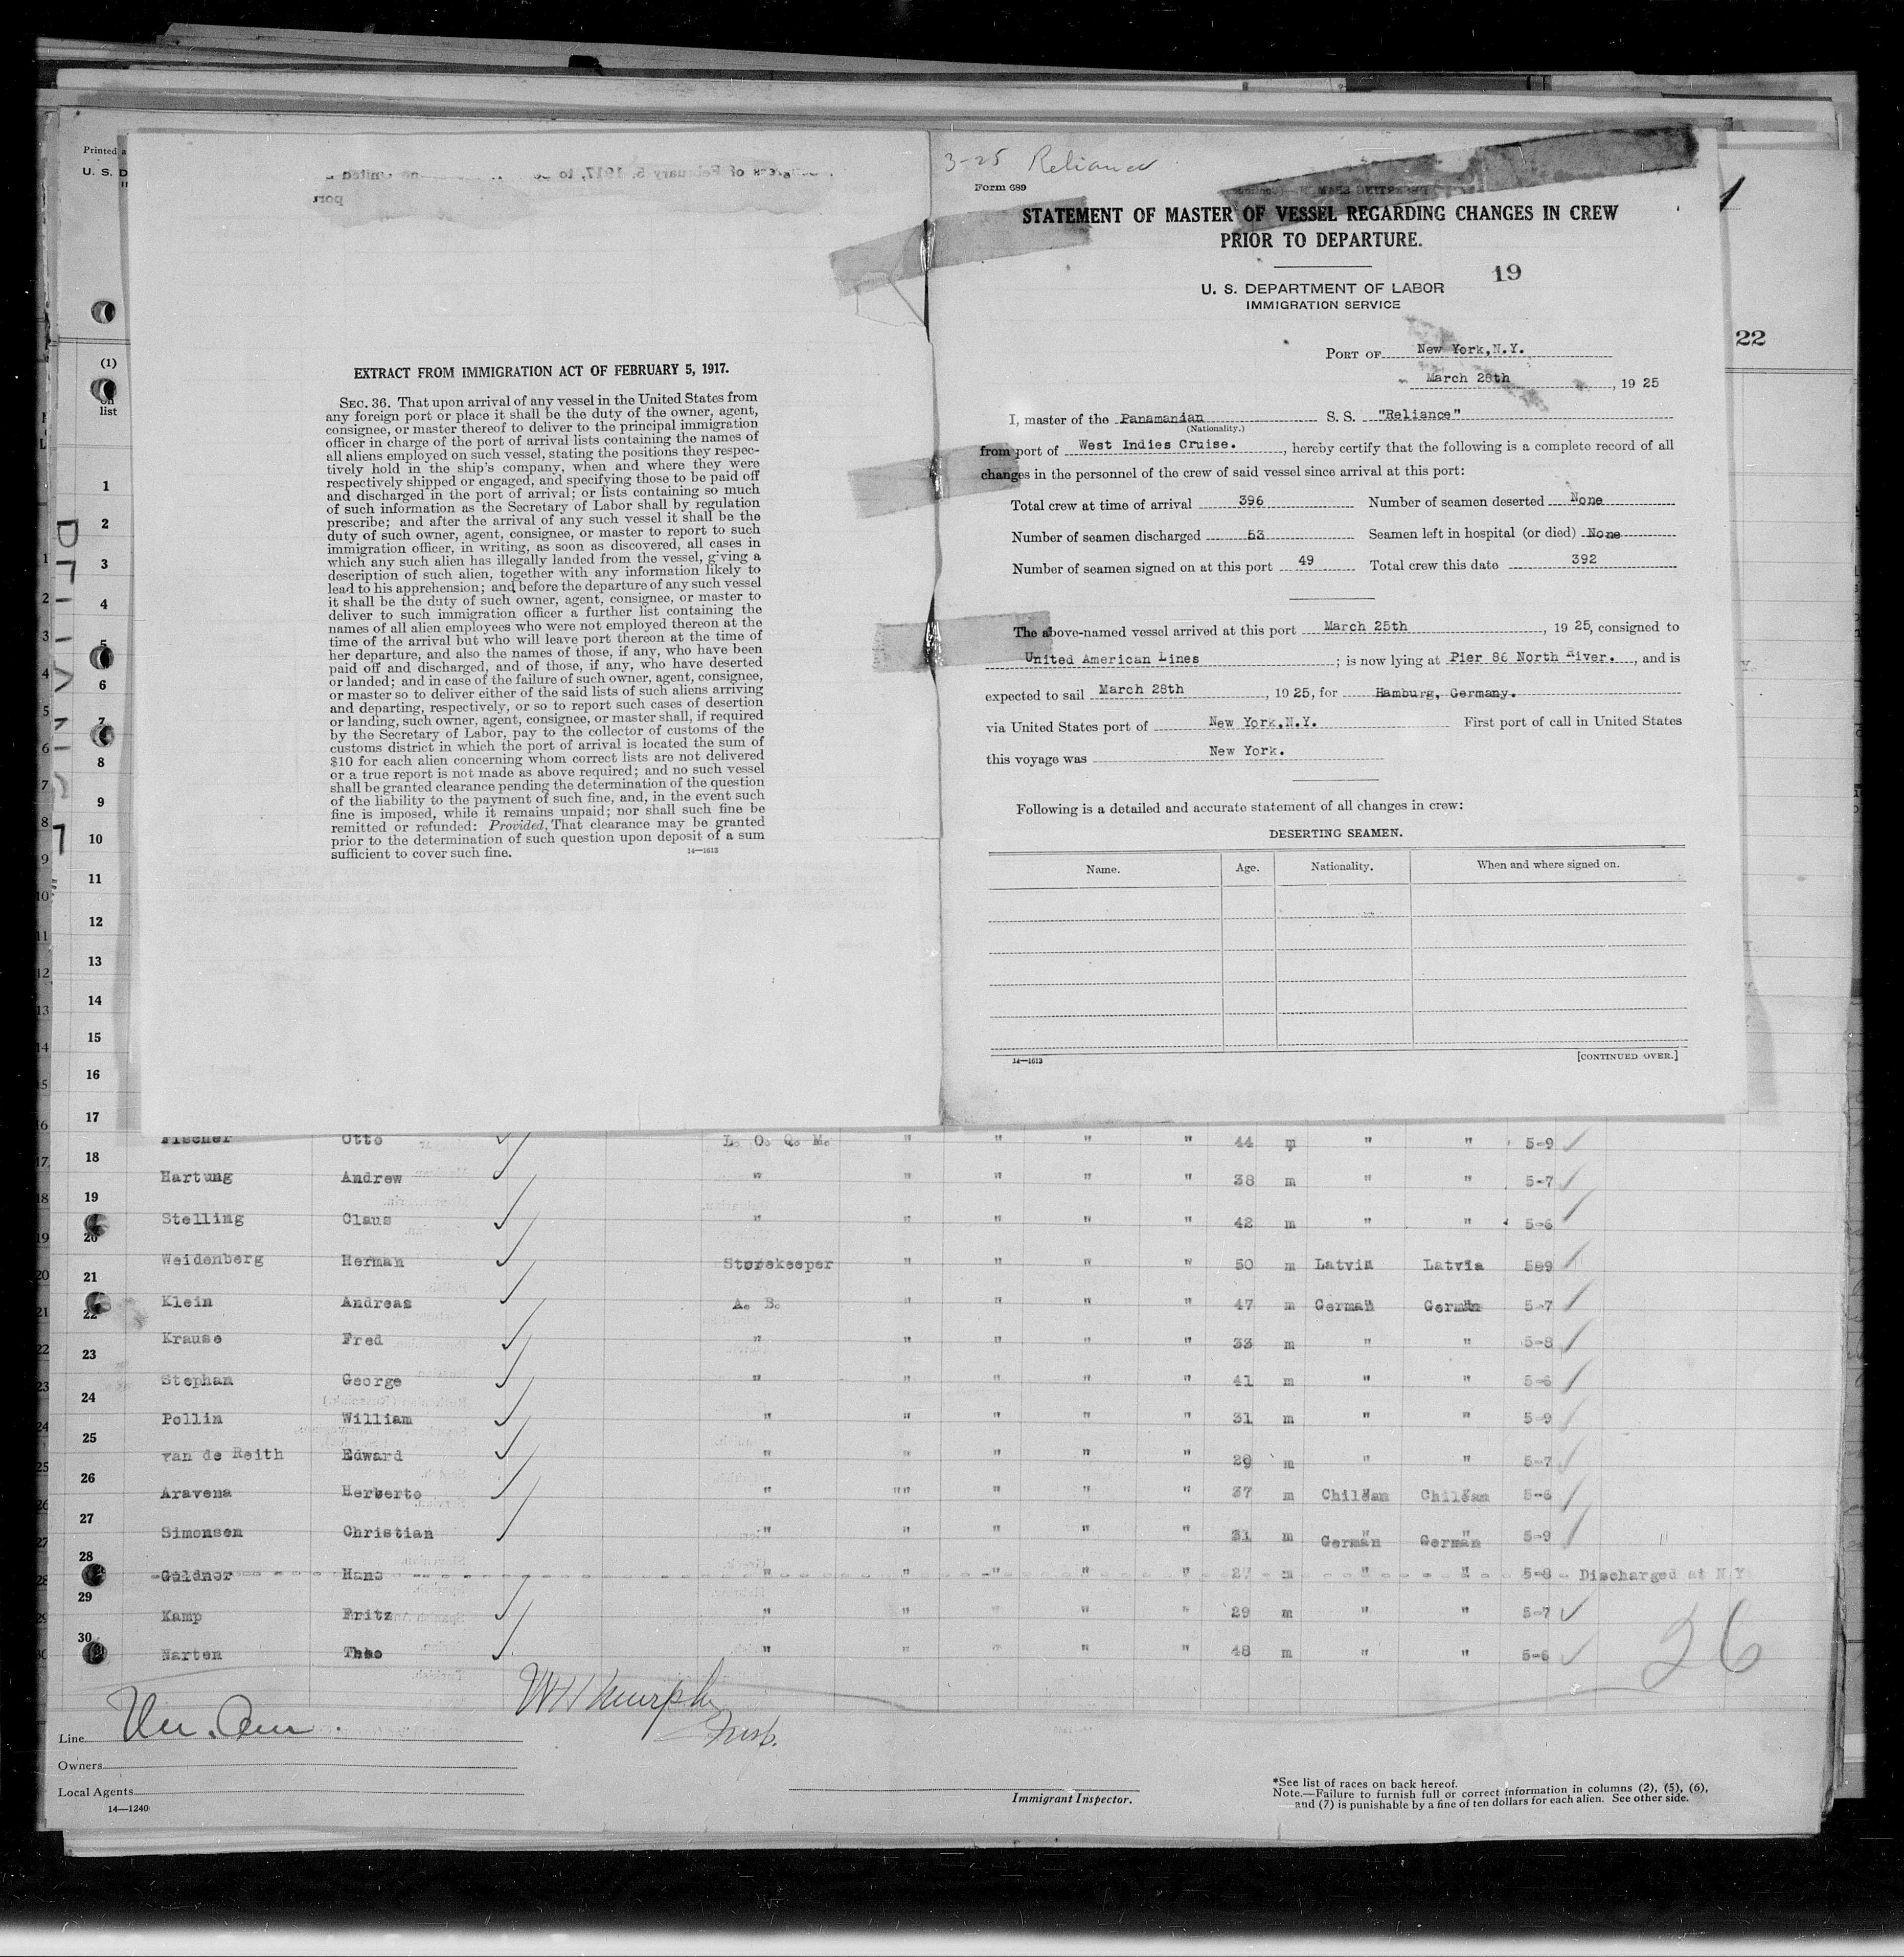 Printed a
U. S. D
(1)
on
list
EXTRACT FROM IMMIGRATION ACT OF FEBRUARY 5, 1917.
SEC. 36. That upon arrival of any vessel in the United States from
any foreign port or place it shall be the duty of the owner, agent,
consignee, or master thereof to deliver to the principal immigration
officer in charge of the port of arrival lists containing the names of
all aliens employed on such vessel, stating the positions they respec-
tively hold in the ship's company, when and where they were
respectively shipped or engaged, and specifying those to be paid off
and discharged in the port of arrival; or lists containing so much
of such information as the Secretary of Labor shall by regulation
prescribe; and after the arrival of any such vessel it shall be the
duty of such owner, agent, consignee, or master to report to such
immigration officer, in writing, as soon as discovered, all cases in
which any such alien has illegally landed from the vessel, giving a
description of such alien, together with any information likely to
lead to his apprehension; and before the departure of any such vessel
it shall be the duty of such owner, agent, consignee, or master to
deliver to such immigration officer a further list containing the
names of all alien employees who were not employed thereon at the
time of the arrival but who will leave port thereon at the time of
her departure, and also the names of those, if any, who have been
paid off and discharged, and of those, if any, who have deserted
or landed; and in case of the failure of such owner, agent, consignee,
or master so to deliver either of the said lists of such aliens arriving
and departing, respectively, or so to report such cases of desertion
or landing, such owner, agent, consignee, or master shall, if required
by the Secretary of Labor, pay to the collector of customs of the
customs district in which the port of arrival is located the sum of
$10 for each alien concerning whom correct lists are not delivered
or a true report is not made as above required; and no such vessel
shall be granted clearance pending the determination of the question
of the liability to the payment of such fine, and, in the event such
fine is imposed, while it remains unpaid; nor shall such fine be
remitted or refunded: Provided, That clearance may be granted
prior to the determination of such question upon deposit of a sum
sufficient to cover such fine.
14—1613
3-25 Reliance
Form 689
STATEMENT OF MASTER OF VESSEL REGARDING CHANGES IN CREW
PRIOR TO DEPARTURE.
19
U. S. DEPARTMENT OF LABOR
IMMIGRATION SERVICE
22
PORT OF New York,N.Y.
March 28th, 1925
I, master of the Panamanian S. S. "Reliance"
(Nationality.)
from port of West Indies Cruise., hereby certify that the following is a complete record of all
changes in the personnel of the crew of said vessel since arrival at this port:
Total crew at time of arrival 396 Number of seamen deserted None
Number of seamen discharged 53 Seamen left in hospital (or died) None
Number of seamen signed on at this port 49 Total crew this date 392
The above-named vessel arrived at this port March 25th, 1925, consigned to
United American Lines; is now lying at Pier 86 North River., and is
expected to sail March 28th, 1925, for Hamburg, Germany.
via United States port of New York,N.Y. First port of call in United States
this voyage was New York.
Following is a detailed and accurate statement of all changes in crew:
DESERTING SEAMEN.
Name. Age. Nationality. When and where signed on.
14—1613 [CONTINUED OVER.]
1
2
3
4
5
6
7
8
9
10
11
12
13
14
15
16
17
Fischer Otto L. O. Q. M. " " " " 44 m " " 5-9
18
Hartung Andrew " " " " " 38 m " " 5-7
19
Stelling Claus " " " " " 42 m " " 5-6
20
Weidenberg Herman Storekeeper " " " " 50 m Latvia Latvia 5-9
21
Klein Andreas A. B. " " " " 47 m German German 5-7
22
Krause Fred " " " " " 33 m " " 5-8
23
Stephan George " " " " " 41 m " " 5-6
24
Pollin William " " " " " 31 m " " 5-9
25
van de Reith Edward " " " " " 29 m " " 5-7
26
Aravena Herberto " "" " " " 37 m Chilean Chilean 5-6
27
Simonsen Christian " " " " " 31 m German German 5-9
28
Guldner Hans " " " " 27 m " " 5-8 - Discharged at N Y
29
Kamp Fritz " " " " " 29 m " " 5-7
30
Harten Theo " " " " " 48 m " " 5-6
26
W H Murphy
Insp.
Line Un. Am.
Owners
Local Agents
14—1240
Immigrant Inspector.
*See list of races on back hereof.
Note.—Failure to furnish full or correct information in columns (2), (5), (6),
and (7) is punishable by a fine of ten dollars for each alien. See other side.